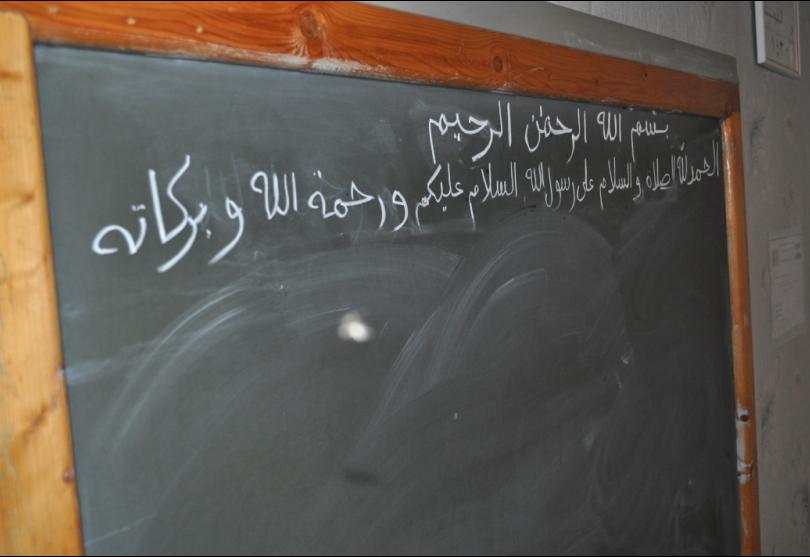 بسم الله الرحمٰن الرحيم
الحمد لله اصلاه والسلام على رسول الله السلام عليكم ورحمة الله وبركاته